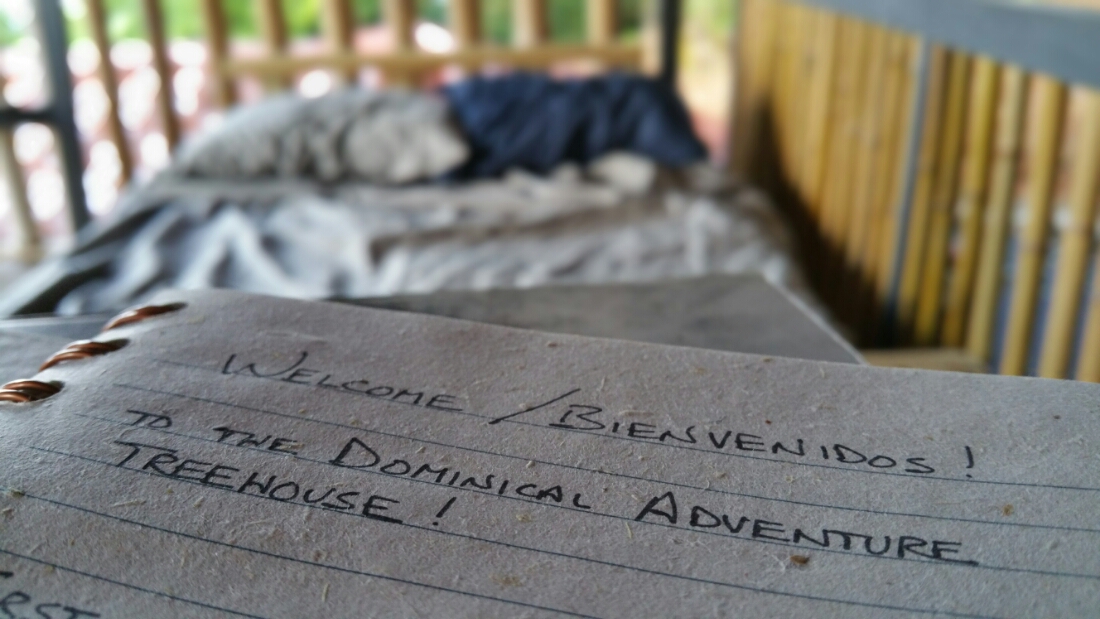 WELCOME / BIENVENIDOS!
TO THE DOMINICAL ADVENTURE
TREEHOUSE!